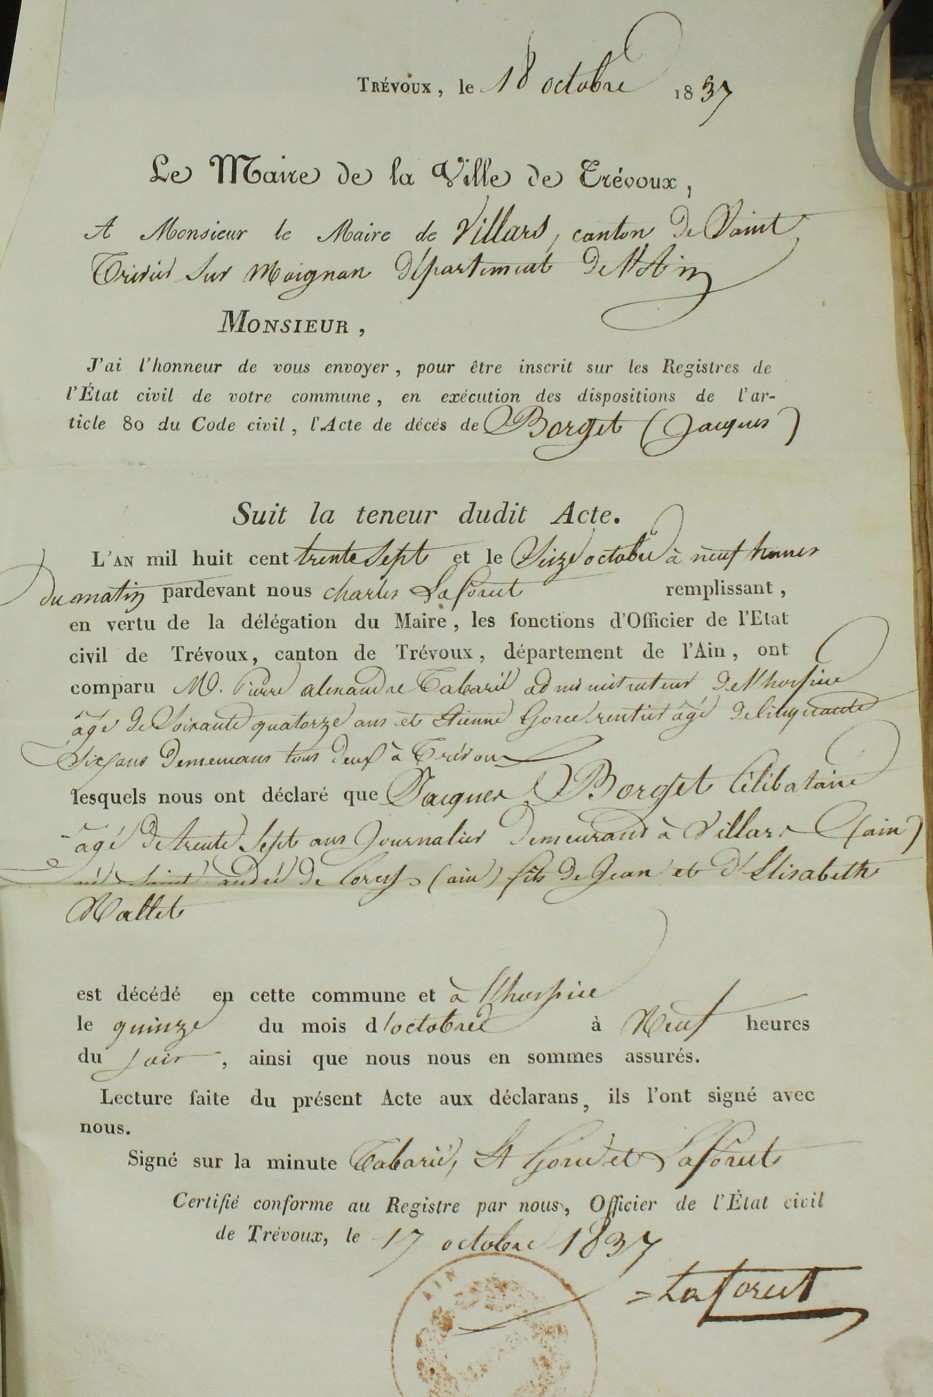 TRÉVOUX, le 18 octobre 1837
Le Maire de la Ville de Trévoux,
A Monsieur le Maire de Villars, canton de Saint
Trivier sur Moignan département de l'Ain
MONSIEUR,
J'ai l'honneur de vous envoyer, pour être inscrit sur les Registres de
l'État civil de votre commune, en exécution des dispositions de l'ar-
ticle 80 du Code civil, l'Acte de décès de Borget (Jacques)
Suit la teneur dudit Acte.
L'AN mil huit cent trente sept et le Seize octobre à neuf heures
du matin pardevant nous charles Laforest remplissant,
en vertu de la délégation du Maire, les fonctions d'Officier de l'Etat
civil de Trévoux, canton de Trévoux, département de l'Ain, ont
comparu M. Pierre alexandre Tabarié administrateur de l'hospice
âgé de Soixante quatorze ans et Etienne Gorce rentier âgé de Cinquante
Six ans Demeurans tous deux à Trévoux
lesquels nous ont déclaré que Jacques Borget Célibataire
âgé de trente Sept ans Journalier demeurant à Villars (ain)
né Saint andré de Corcy (ain) fils de Jean et d'Elisabeth
Mallet
est décédé en cette commune et à l'hospice
le quinze du mois d'octobre à Neuf heures
du soir, ainsi que nous nous en sommes assurés.
Lecture faite du présent Acte aux déclarans, ils l'ont signé avec
nous.
Signé sur la minute Tabarié, Et Gorce et Laforest
Certifié conforme au Registre par nous, Officier de l'État civil
de Trévoux, le 17 octobre 1837
Laforest
AIN